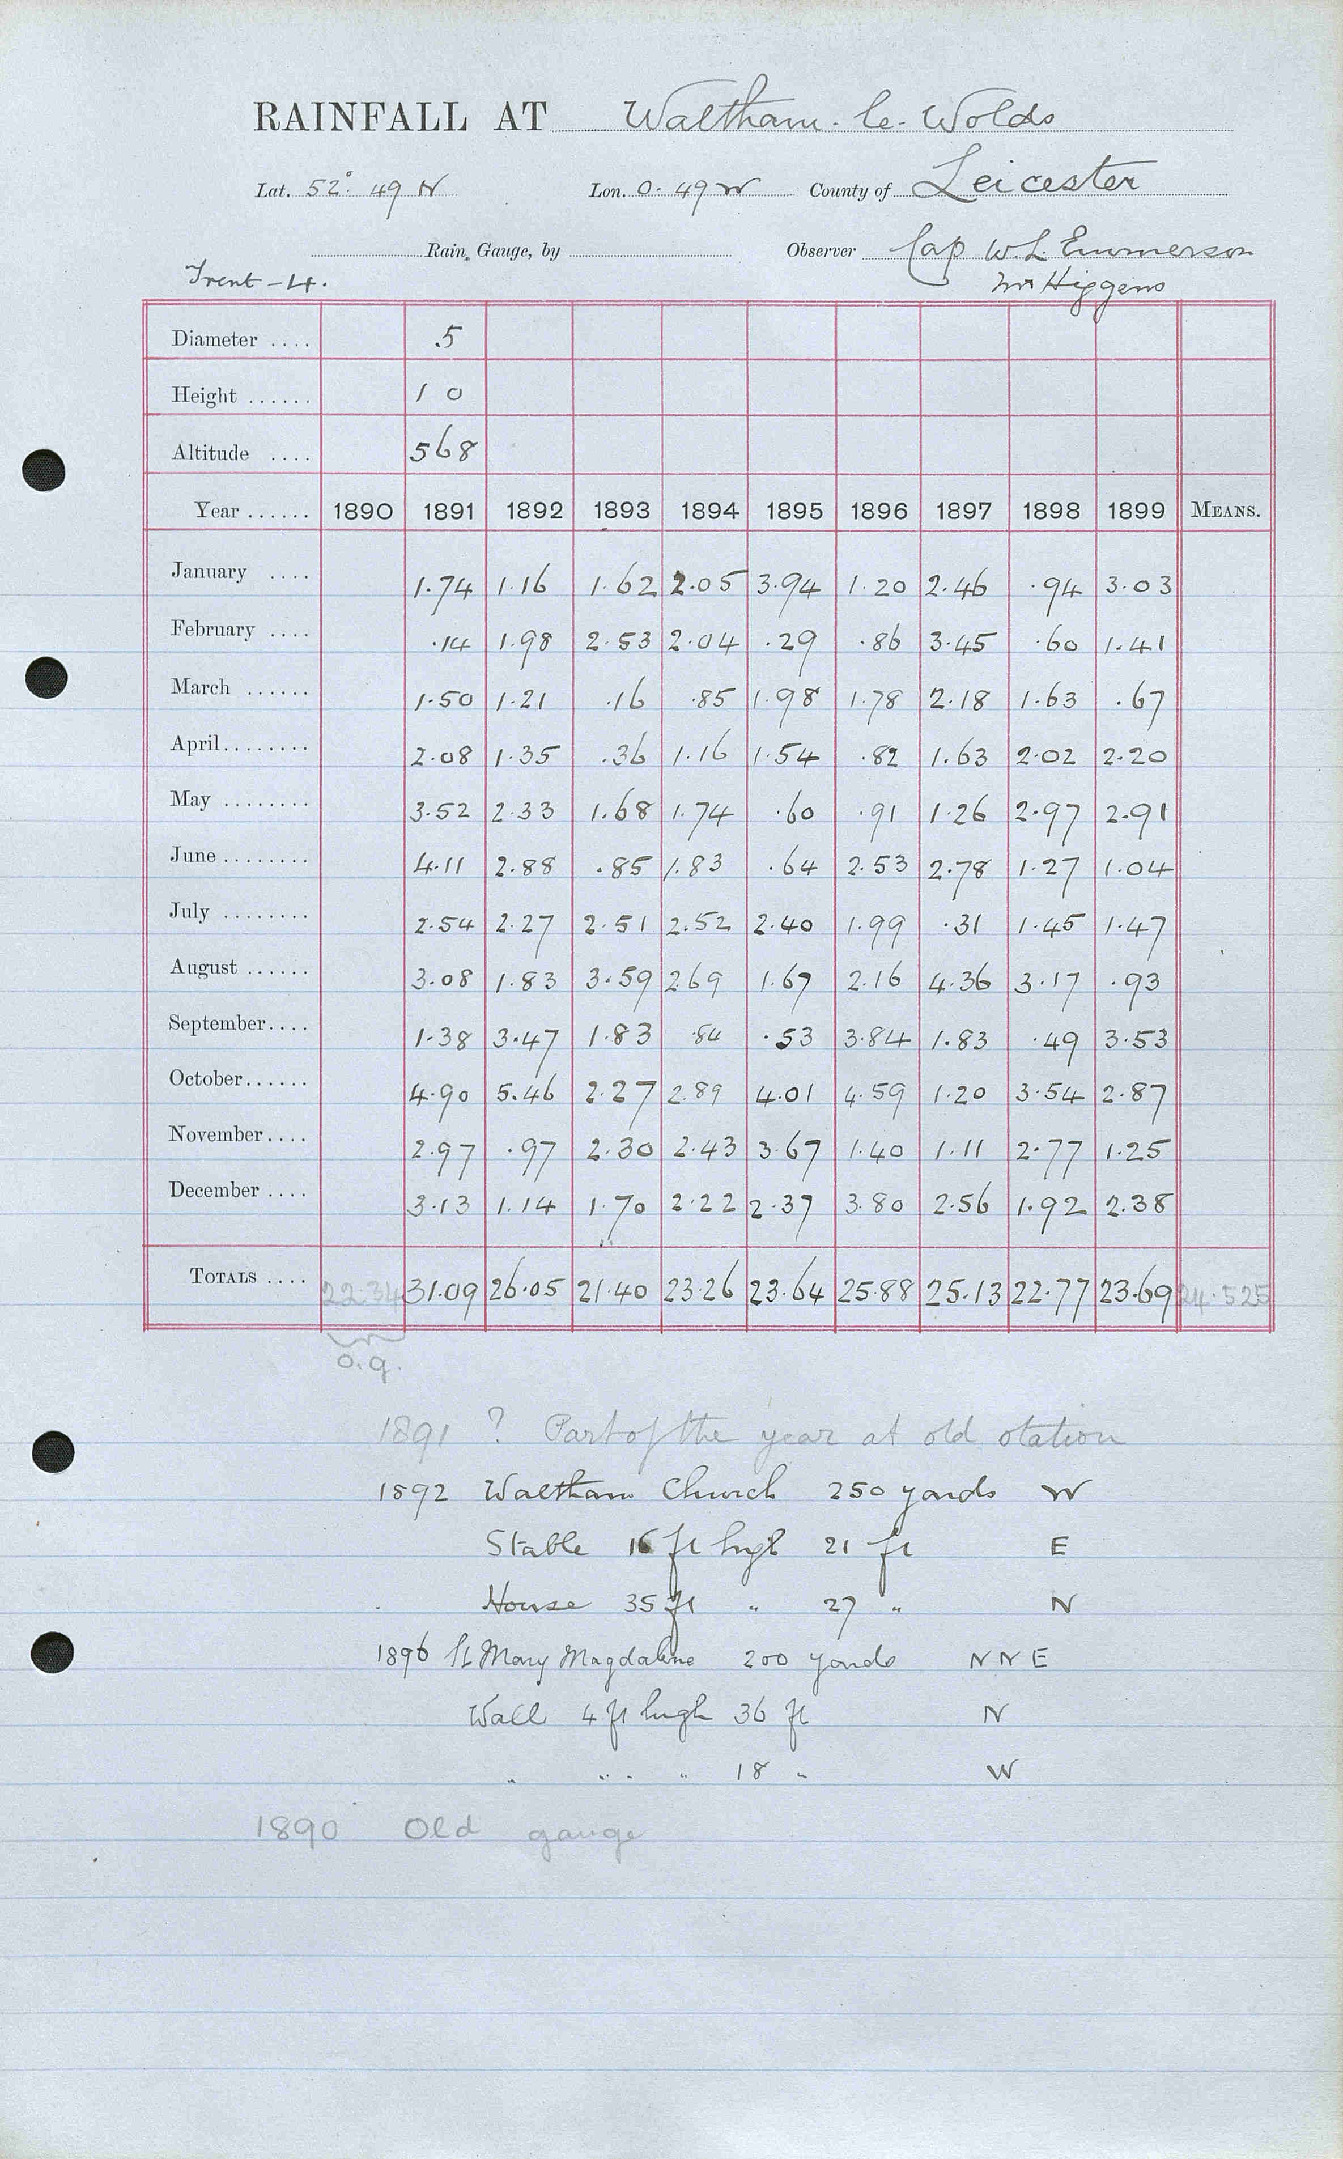 RAINFALL AT Waltham-le-Wolds
Lat. 52° 49 N Lon. 0. 49 W County of Leicester
Rain Gauge, by Observer Cap W.L Emmerson
Trent-4. Mr Higgens
Diameter .... .5
Height ...... 1 0
Altitude .... 568
Year ...... 1890 1891 1892 1893 1894 1895 1896 1897 1898 1899 MEANS.
January .... 1.74 1.16 1.62 2.05 3.94 1.20 2.46 .94 3.03
February .... .14 1.98 2.53 2.04 .29 .86 3.45 .60 1.41
March ...... 1.50 1.21 .16 .85 1.98 1.78 2.18 1.63 .67
April........ 2.08 1.35 .36 1.16 1.54 .82 1.63 2.02 2.20
May ........ 3.52 2.33 1.68 1.74 .60 .91 1.26 2.97 2.91
June ........ 4.11 2.88 .85 1.83 .64 2.53 2.78 1.27 1.04
July ........ 2.54 2.27 2.51 2.52 2.40 1.99 .31 1.45 1.47
August ...... 3.08 1.83 3.59 2.69 1.67 2.16 4.36 3.17 .93
September.... 1.38 3.47 1.83 .84 .53 3.84 1.83 .49 3.53
October...... 4.90 5.46 2.27 2.89 4.01 4.59 1.20 3.54 2.87
November.... 2.97 .97 2.30 2.43 3.67 1.40 1.11 2.77 1.25
December .... 3.13 1.14 1.70 2.22 2.37 3.80 2.56 1.92 2.38
TOTALS .... 22.34 31.09 26.05 21.40 23.26 23.64 25.88 25.13 22.77 23.69 24.525
o.g.
1891 ? Part of the year at old station
1892 Waltham Church 250 yards W
Stable 16 ft high 21 ft E
House 35 ft " 27 " N
1896 St Mary Magdalene 200 yards NNE
Wall 4 ft high 36 ft N
" " " " 18 " W
1890 Old gauge